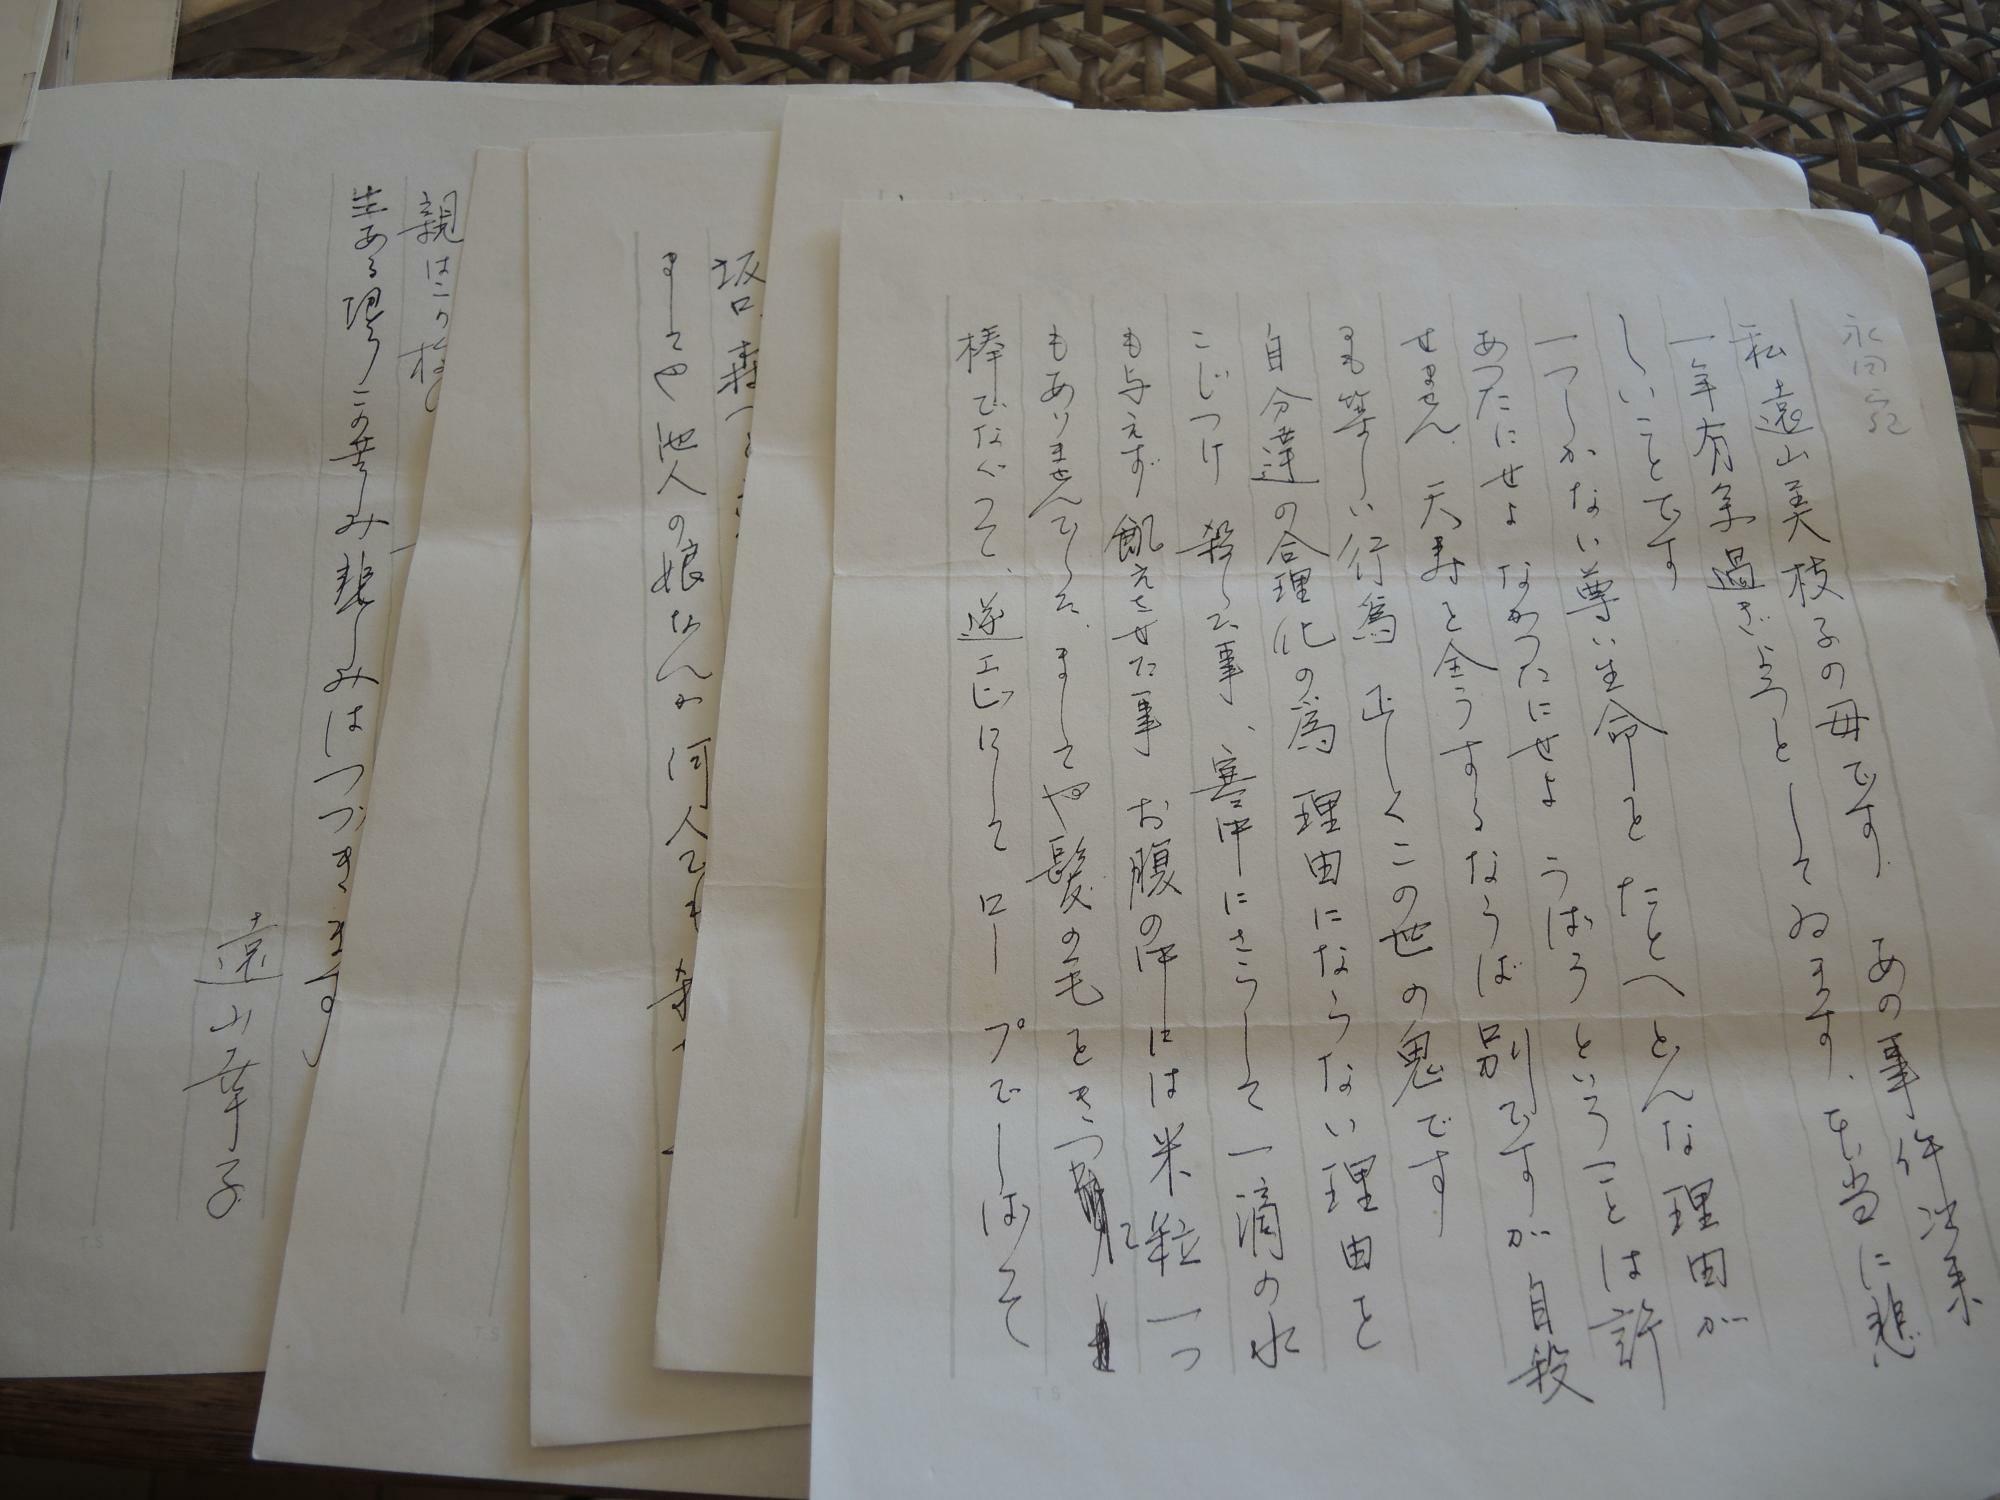 永田宛
私遠山美枝子の母です あの事件以来
一年有余過ぎようとしてゐます、本当に悲
しいことです
一つしかない尊い生命を たとへどんな理由が
あったにせよ なかったにせよ うばうということは許
せません、天寿を全うするならば別ですが 自殺
も
しい行為 正しくこの世の鬼です
自分達の合理化の為 理由にならない理由を
こじつけ 殺した事、寒中にさらして一滴の水
も与えず 飢えさせた事 お腹の中には米粒一つ
もありませんでした、ましてや髪の毛をきつ
棒でなぐって、逆エビにしてロープでしばって
坂口、森
ましてや 他人の娘なんか何人でも
親はこの
生ある限りこの苦しみ悲しみはつづきます
遠山幸子
TS
TS
TS